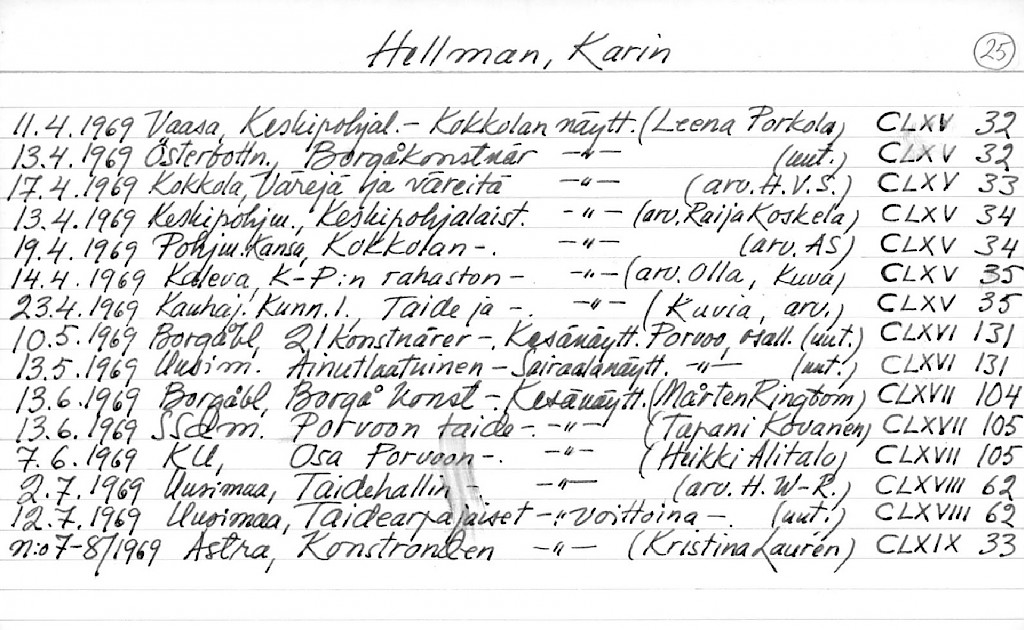 Hellman, Karin 25
11.4.1969 Vaasa, Keskipohjal.- Kokkolan näytt. (Leena Porkola) CLXV 32
13.4.1969 Österbottn., Borgåkonstnär -"- (uut.) CLXV 32
17.4.1969 Kokkola, Värejä ja väreitä -"- (arv. H.V.S.) CLXV 33
13.4.1969 Keskipohjm., Keskipohjalaist. -"- (arv. Raija Koskela) CLXV 34
19.4.1969 Pohjm. Kansa, Kokkolan -. -"- (arv. AS) CLXV 34
14.4.1969 Kaleva, K-P:n rahaston - -"- (arv. Olla, Kuva) CLXV 35
23.4.1969 Kauhaj. Kunn.l., Taide ja -. -"- (Kuvia, arv.) CLXV 35
10.5.1969 Borgåbl, 21 konstnärer -. Kesänäytt. Porvoo, osall. (uut.) CLXVI 131
13.5.1969 Uusim. Ainutlaatuinen - Sairaalanäytt. -"- (uut.) CLXVI 131
13.6.1969 Borgåbl, Borgå konst -. Kesänäytt. (Mårten Ringbom) CLXVII 104
13.6.1969 SSdm. Porvoon taide -. -"- (Tapani Kovanen) CLXVII 105
7.6.1969 KU, Osa Porvoon -. -"- (Heikki Alitalo) CLXVII 105
2.7.1969 Uusimaa, Taidehallin -. -"- (arv. H. W-R.) CLXVIII 62
12.7.1969 Uusimaa, Taidearpajaiset -"- voittoina -. (uut.) CLXVIII 62
n:o 7-8/1969 Astra, Konstronden -"- (Kristina Laurén) CLXIX 33